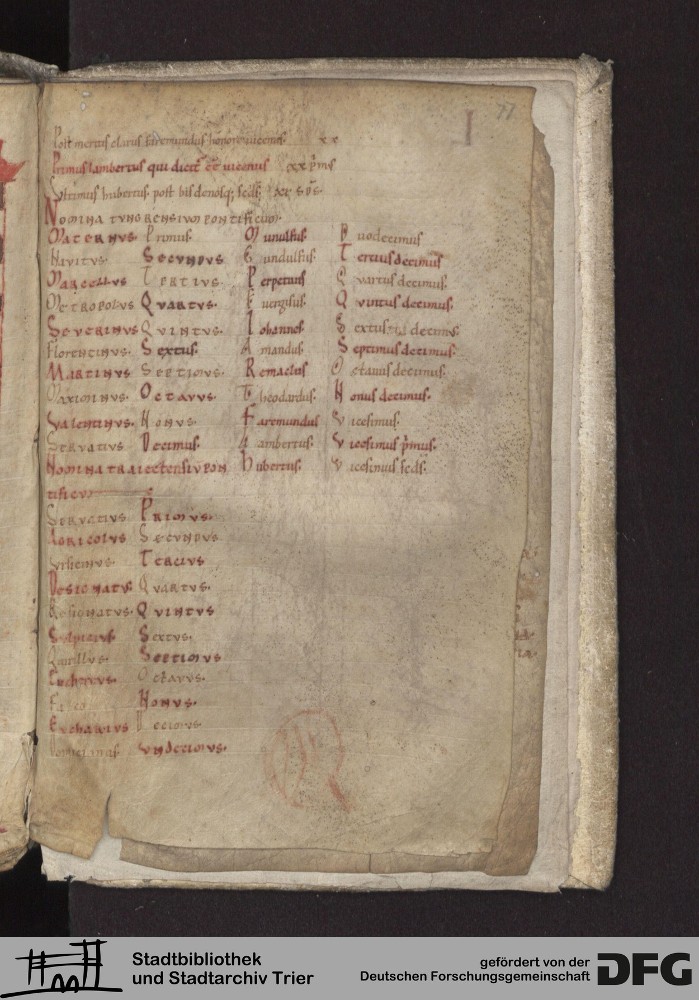 77
Post meritis clarus faramundus honore vicenus xx
Primus lambertus qui dict' e't vicenus xx pmus
Ultimus hubertus post bis denosq; sed's xx s'ds
NOMINA TUNGRENSIUM PONTIFICUM.
MATERNUS Primus. Munulfus. Duodecimus
NAVITUS. SECUNDUS Gundulfus. Tercius decimus
MARCELLUS TERTIUS. Perpetuus Quartus decimus.
METROPOLUS QUARTUS. Euergisus. Quintus decimus.
SEVERINUS QUINTUS. Iohannes Sextus decimus
FLORENTINUS. Sextus. Amandus. Septimus decimus.
MARTINUS SEPTIMUS. Remaclus Octauus decimus.
MAXIMINUS. OCTAVUS. Theodardus. Nonus decimus.
VALENTINUS. NONUS. Faramundus Vicesimus.
SERVATIUS Decimus. Lambertus. Vicesimus p'mus.
NOMINA TRAIECTENSIU PON Hubertus. Vicesimus sed's.
tificu
SERVATIUS PRIMUS.
AGRICOLUS SECUNDUS
Ursicinus. TERCIUS
DESIGNATUS QUARTUS.
RESIGNATUS. QUINTUS
Sulpicius. SEXTUS.
Quirillus. SEPTIMUS
Eucherius. OCTAVUS.
Falco NONUS.
EUCHARIUS DECIMUS.
Domicianus. UNDECIMUS.
Stadtbibliothek
und Stadtarchiv Trier
gefördert von der
Deutschen Forschungsgemeinschaft
DFG